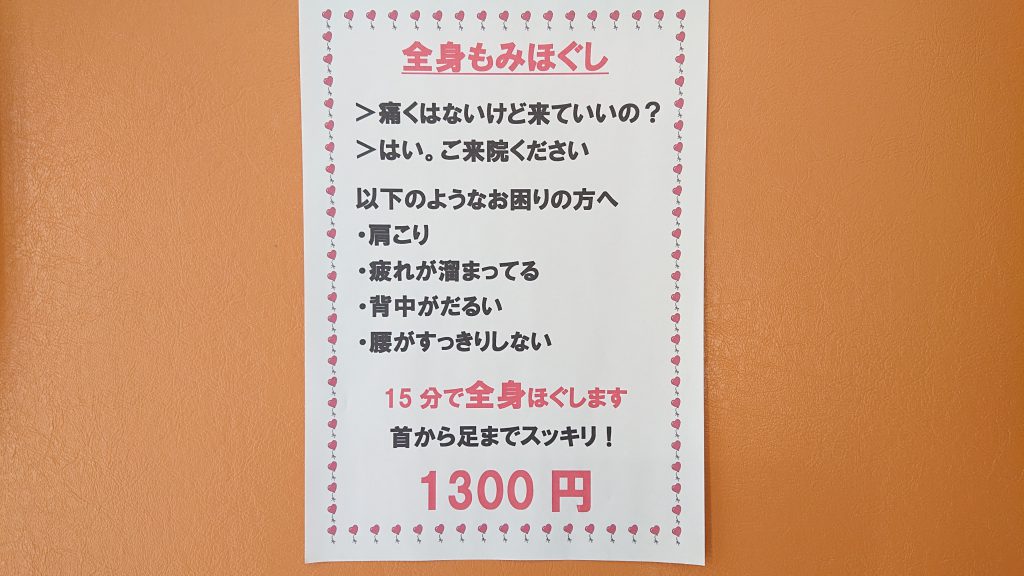 全身もみほぐし
＞痛くはないけど来ていいの？
＞はい。ご来院ください
以下のようなお困りの方へ
・肩こり
・疲れが溜まってる
・背中がだるい
・腰がすっきりしない
15分で全身ほぐします
首から足までスッキリ！
1300円